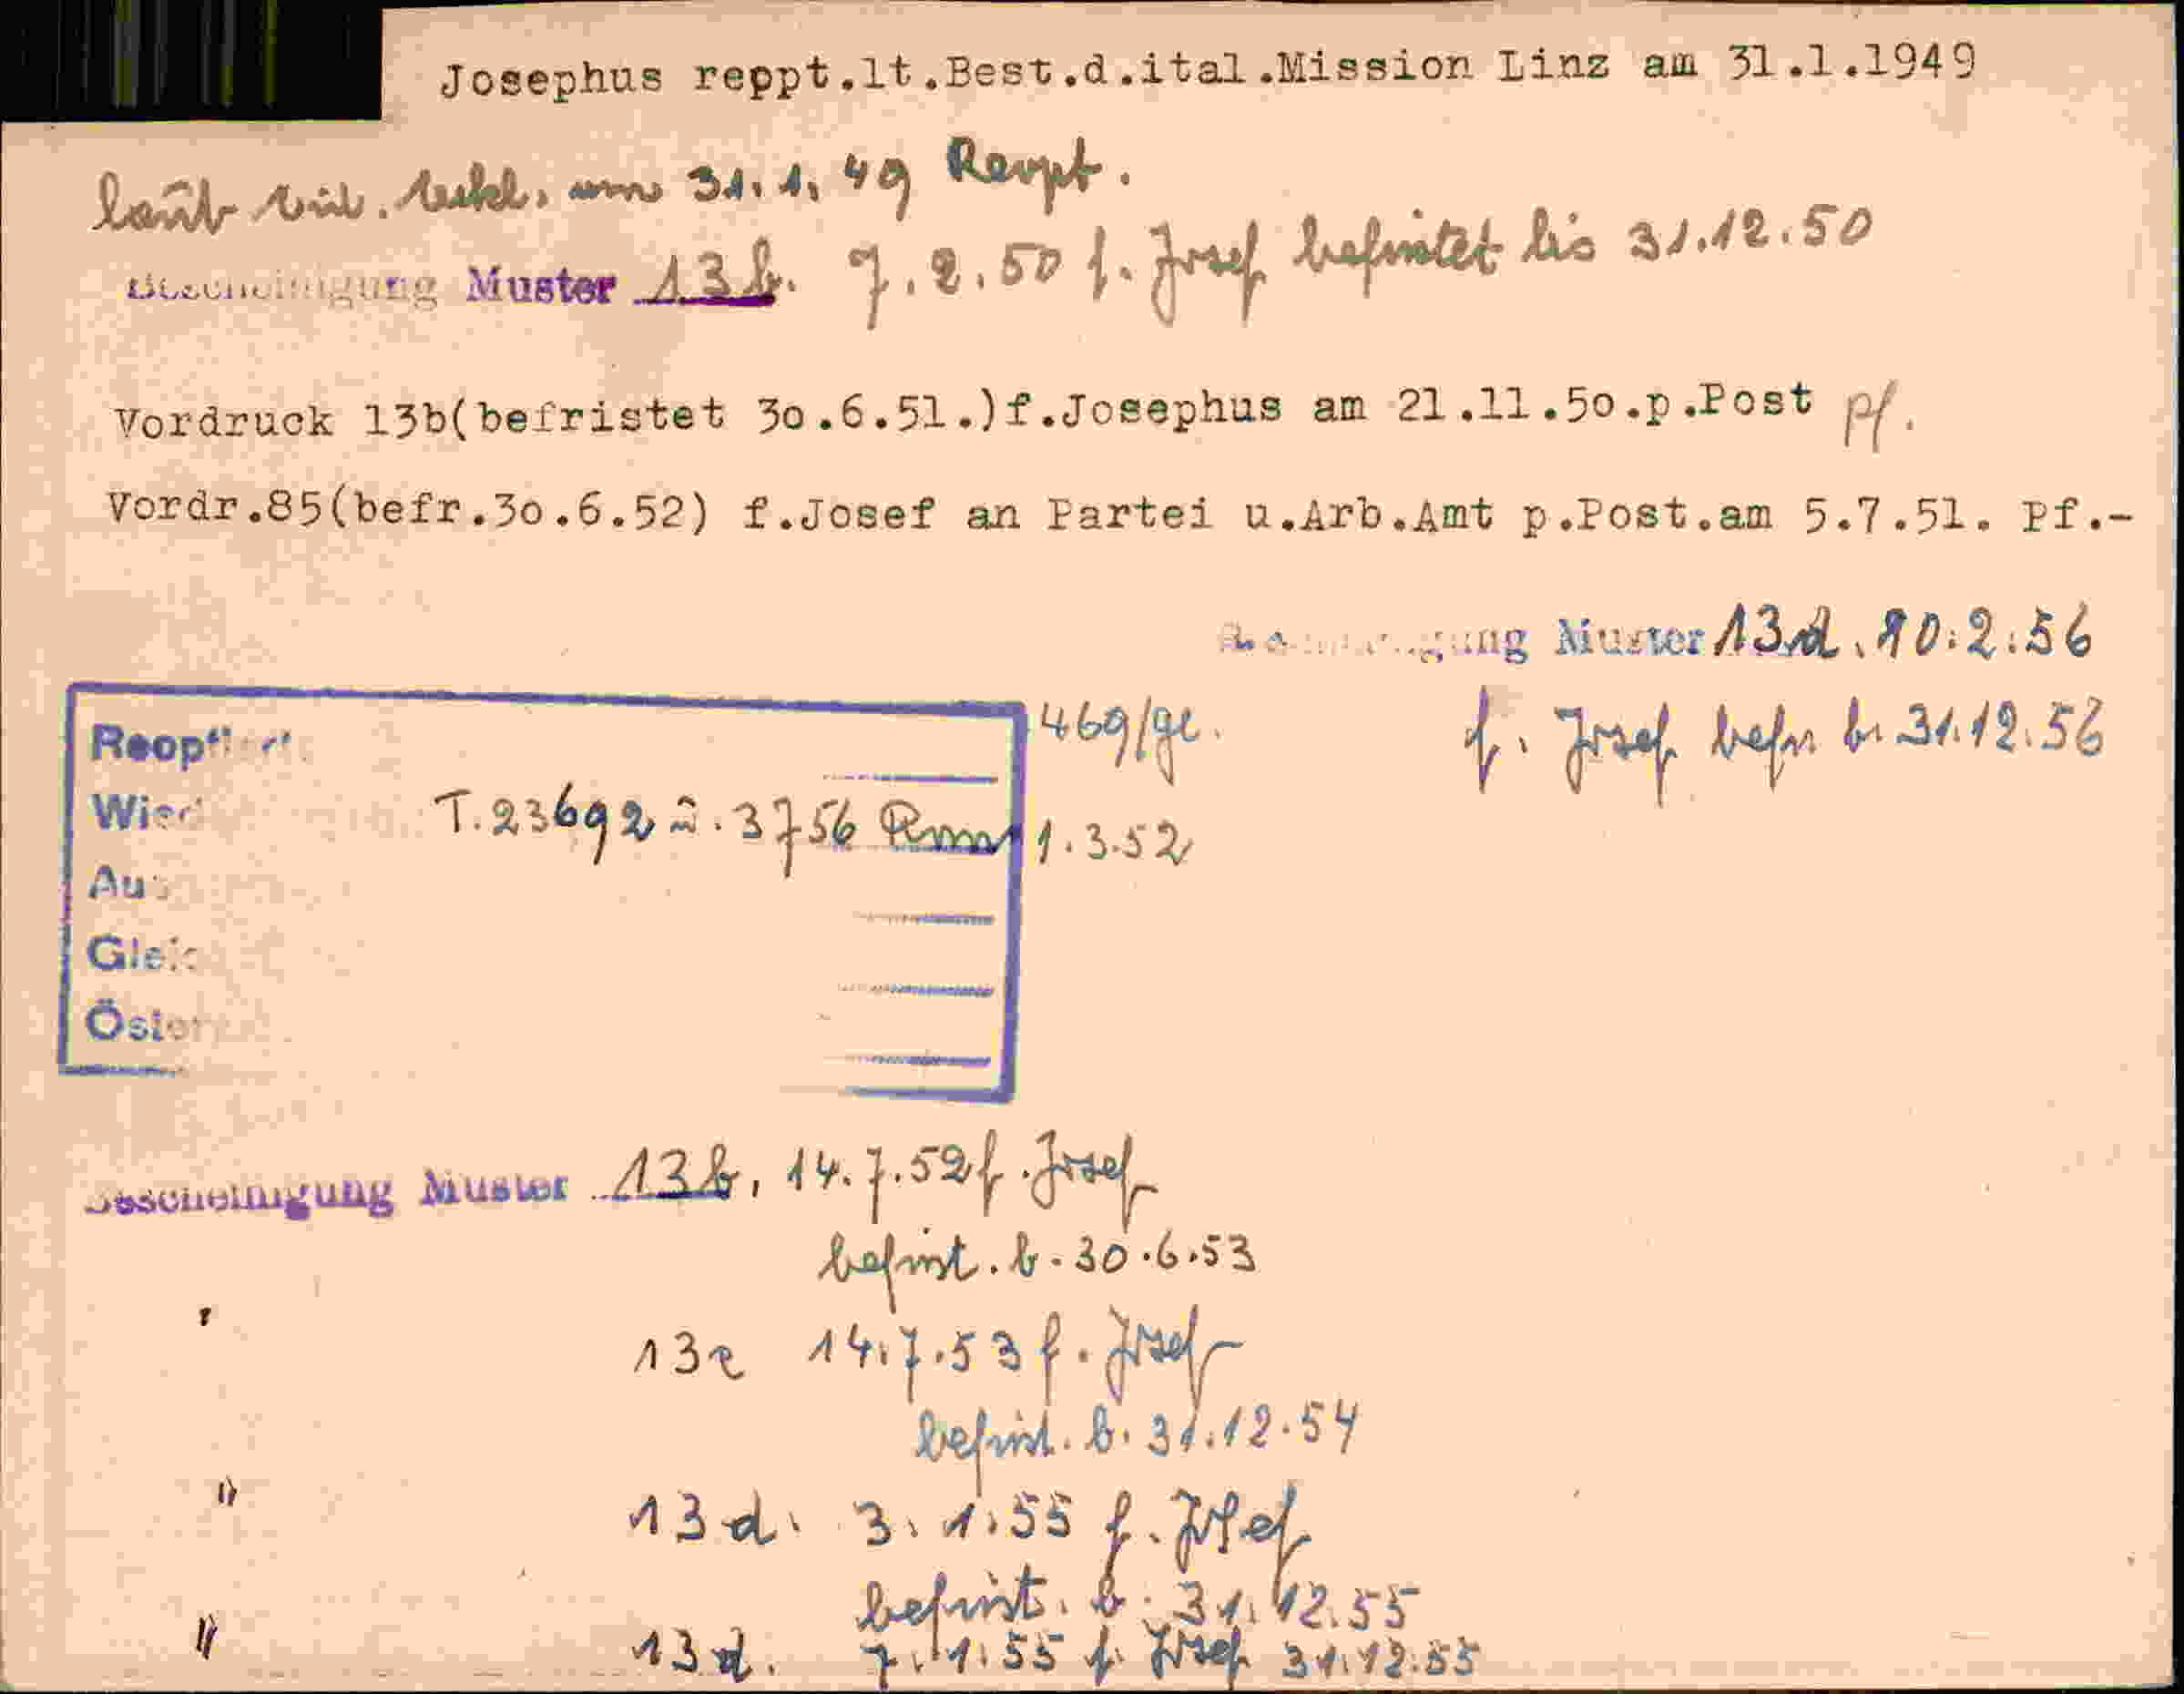 Josephus reppt.lt.Best.d.ital.Mission Linz am 31.1.1949
laut 31.1.49 Reopt.
Bescheinigung Muster 13b. 7.2.50 f. Josef befristet bis 31.12.50
Vordruck 13b(befristet 3o.6.51.)f.Josephus am 21.11.5o.p.Post pf.
Vordr.85(befr.3o.6.52) f.Josef an Partei u.Arb.Amt p.Post.am 5.7.51. Pf.-
Muster 13d. 10.2.56
f. Josef befr b. 31.12.56
469/ge.
T.23692 3756 1.3.52
Bescheinigung Muster 13b, 14.7.52 f. Josef
befrist. b. 30.6.53
" 13c 14.7.53 f. Josef
befrist. b. 31.12.54
" 13d. 3.1.55 f. Josef
befrist. b. 31.12.55
" 13d. 7.1.55 f. Josef 31.12.55